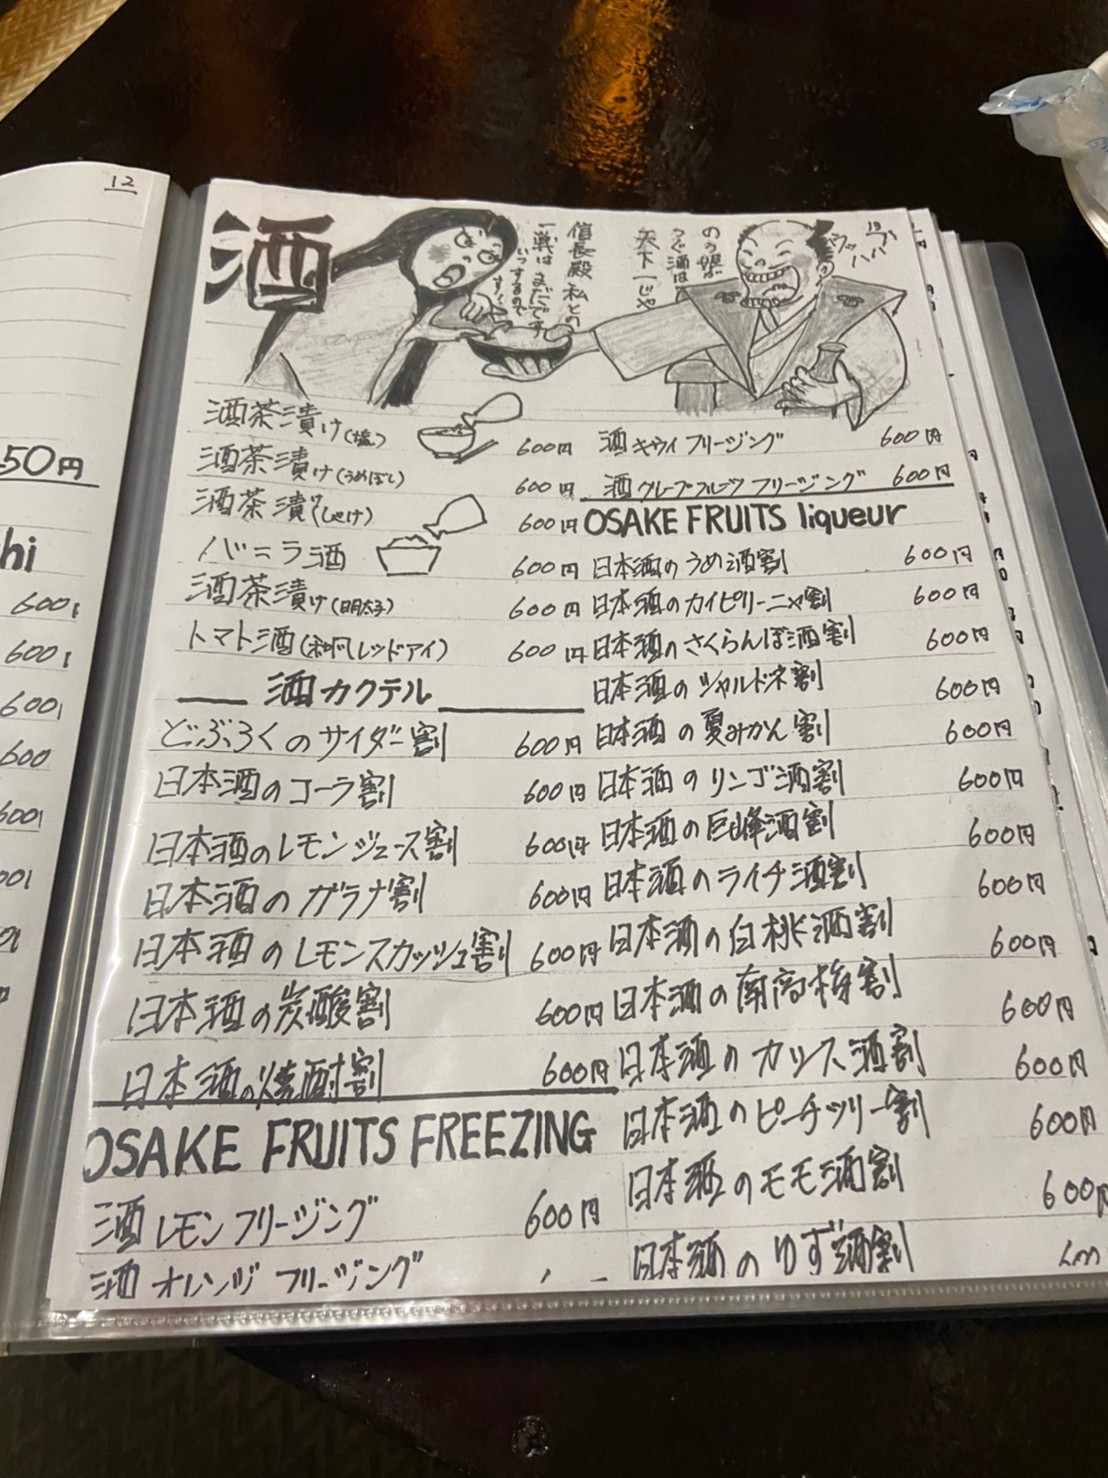 12
酒
信長殿 私との
一戦は まだです
いつするので
す!
のう姫が
つぐ酒は
天下一じゃ
ワッハハハ
50円
hi
600
600
600
600
酒茶漬け(塩) 600円
酒茶漬け(うめぼし) 600円
酒茶漬け(しゃけ) 600円
バニラ酒 600円
酒茶漬け(明太子) 600円
トマト酒(和風レッドアイ) 600円
酒カクテル
どぶろくのサイダー割 600円
日本酒のコーラ割 600円
日本酒のレモンジュース割 600円
日本酒のガラナ割 600円
日本酒のレモンスカッシュ割 600円
日本酒の炭酸割 600円
日本酒の焼酎割 600円
OSAKE FRUITS FREEZING
酒レモンフリージング 600円
酒オレンジフリージング
酒キウイフリージング 600円
酒グレープフルーツフリージング 600円
OSAKE FRUITS liqueur
日本酒のうめ酒割 600円
日本酒のカイピリーニャ割 600円
日本酒のさくらんぼ酒割 600円
日本酒のシャルドネ割 600円
日本酒の夏みかん割 600円
日本酒のリンゴ酒割 600円
日本酒の巨峰酒割 600円
日本酒のライチ酒割 600円
日本酒の白桃酒割 600円
日本酒の南高梅割 600円
日本酒のカシス酒割 600円
日本酒のピーチツリー割 600円
日本酒のモモ酒割 600円
日本酒のゆず酒割